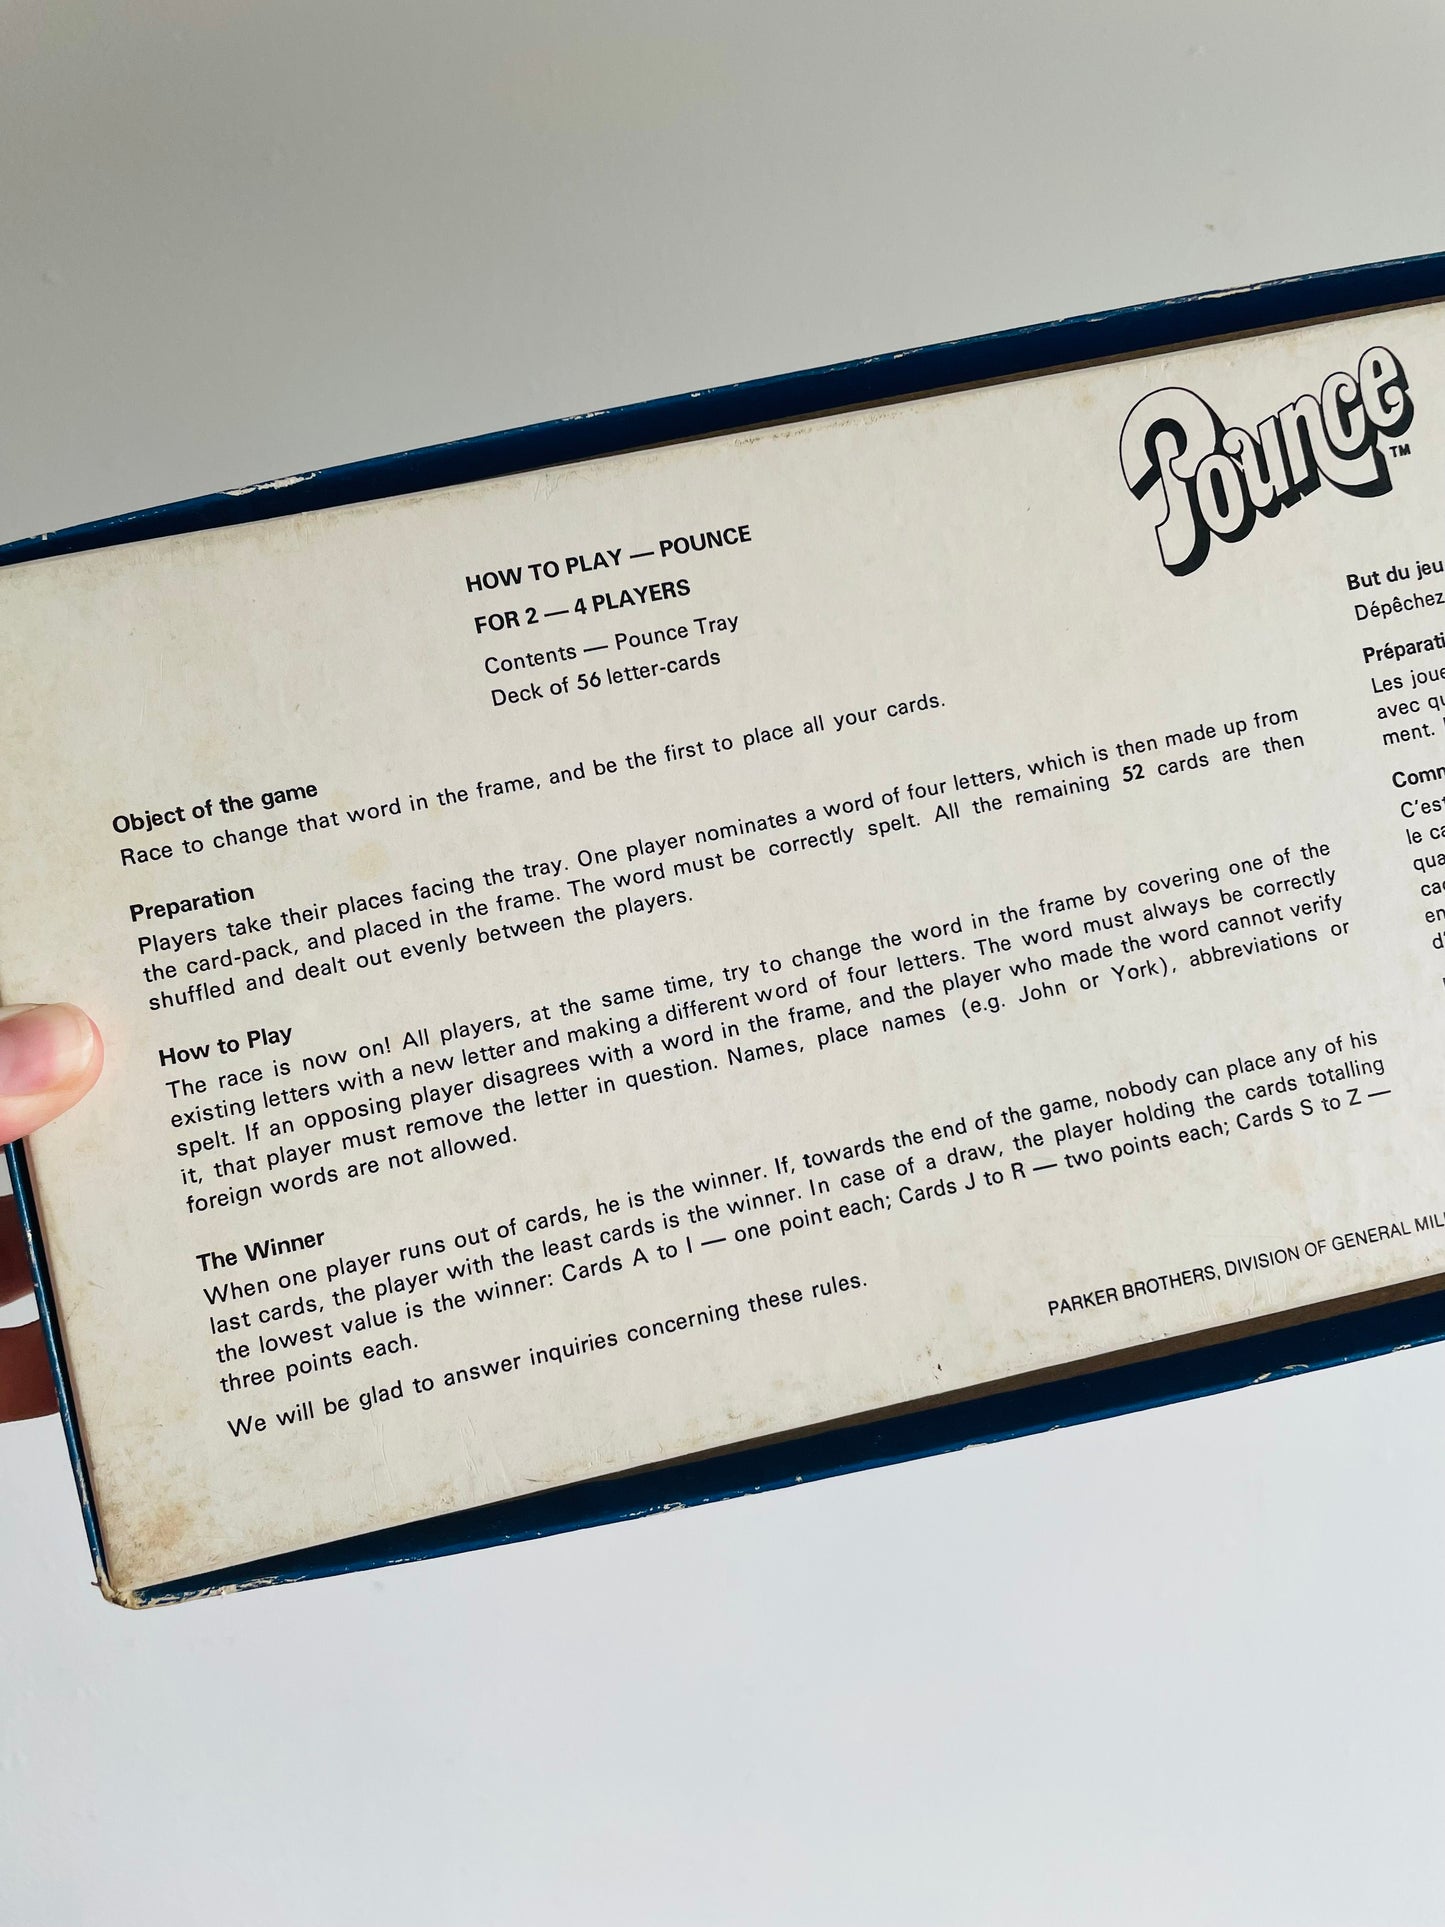 Pounce™
HOW TO PLAY — POUNCE
FOR 2 — 4 PLAYERS
Contents — Pounce Tray
Deck of 56 letter-cards
Object of the game
Race to change that word in the frame, and be the first to place all your cards.
Preparation
Players take their places facing the tray. One player nominates a word of four letters, which is then made up from
the card-pack, and placed in the frame. The word must be correctly spelt. All the remaining 52 cards are then
shuffled and dealt out evenly between the players.
How to Play
The race is now on! All players, at the same time, try to change the word in the frame by covering one of the
existing letters with a new letter and making a different word of four letters. The word must always be correctly
spelt. If an opposing player disagrees with a word in the frame, and the player who made the word cannot verify
it, that player must remove the letter in question. Names, place names (e.g. John or York), abbreviations or
foreign words are not allowed.
The Winner
When one player runs out of cards, he is the winner. If, towards the end of the game, nobody can place any of his
last cards, the player with the least cards is the winner. In case of a draw, the player holding the cards totalling
the lowest value is the winner: Cards A to I — one point each; Cards J to R — two points each; Cards S to Z —
three points each.
We will be glad to answer inquiries concerning these rules.
PARKER BROTHERS, DIVISION OF GENERAL
But du jeu
Dépêchez
Les
avec
ment.
C'est
le